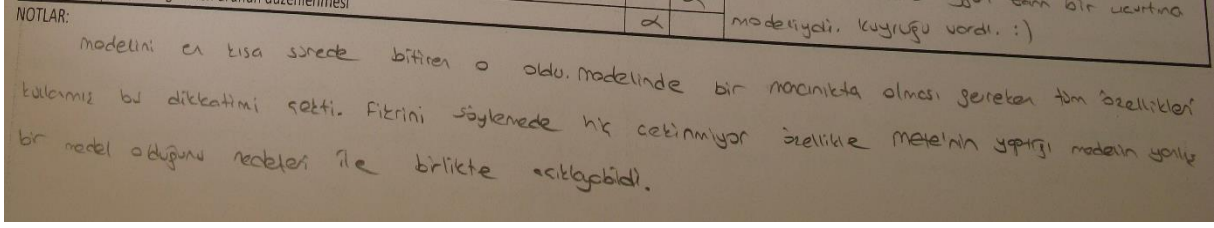 ürünün düzenlenmesi
bir uçurtma
α modeliydi. Kuyruğu vardı. :)
NOTLAR:
modelini en kısa sürede bitiren o oldu. modelinde bir mancınıkta olması gereken tüm özellikleri
kullanmış bu dikkatimi çekti. Fikrini söylemede hiç çekinmiyor özellikle mete'nin yaptığı modelin yanlış
bir model olduğunu nedenleri ile birlikte açıklayabildi.